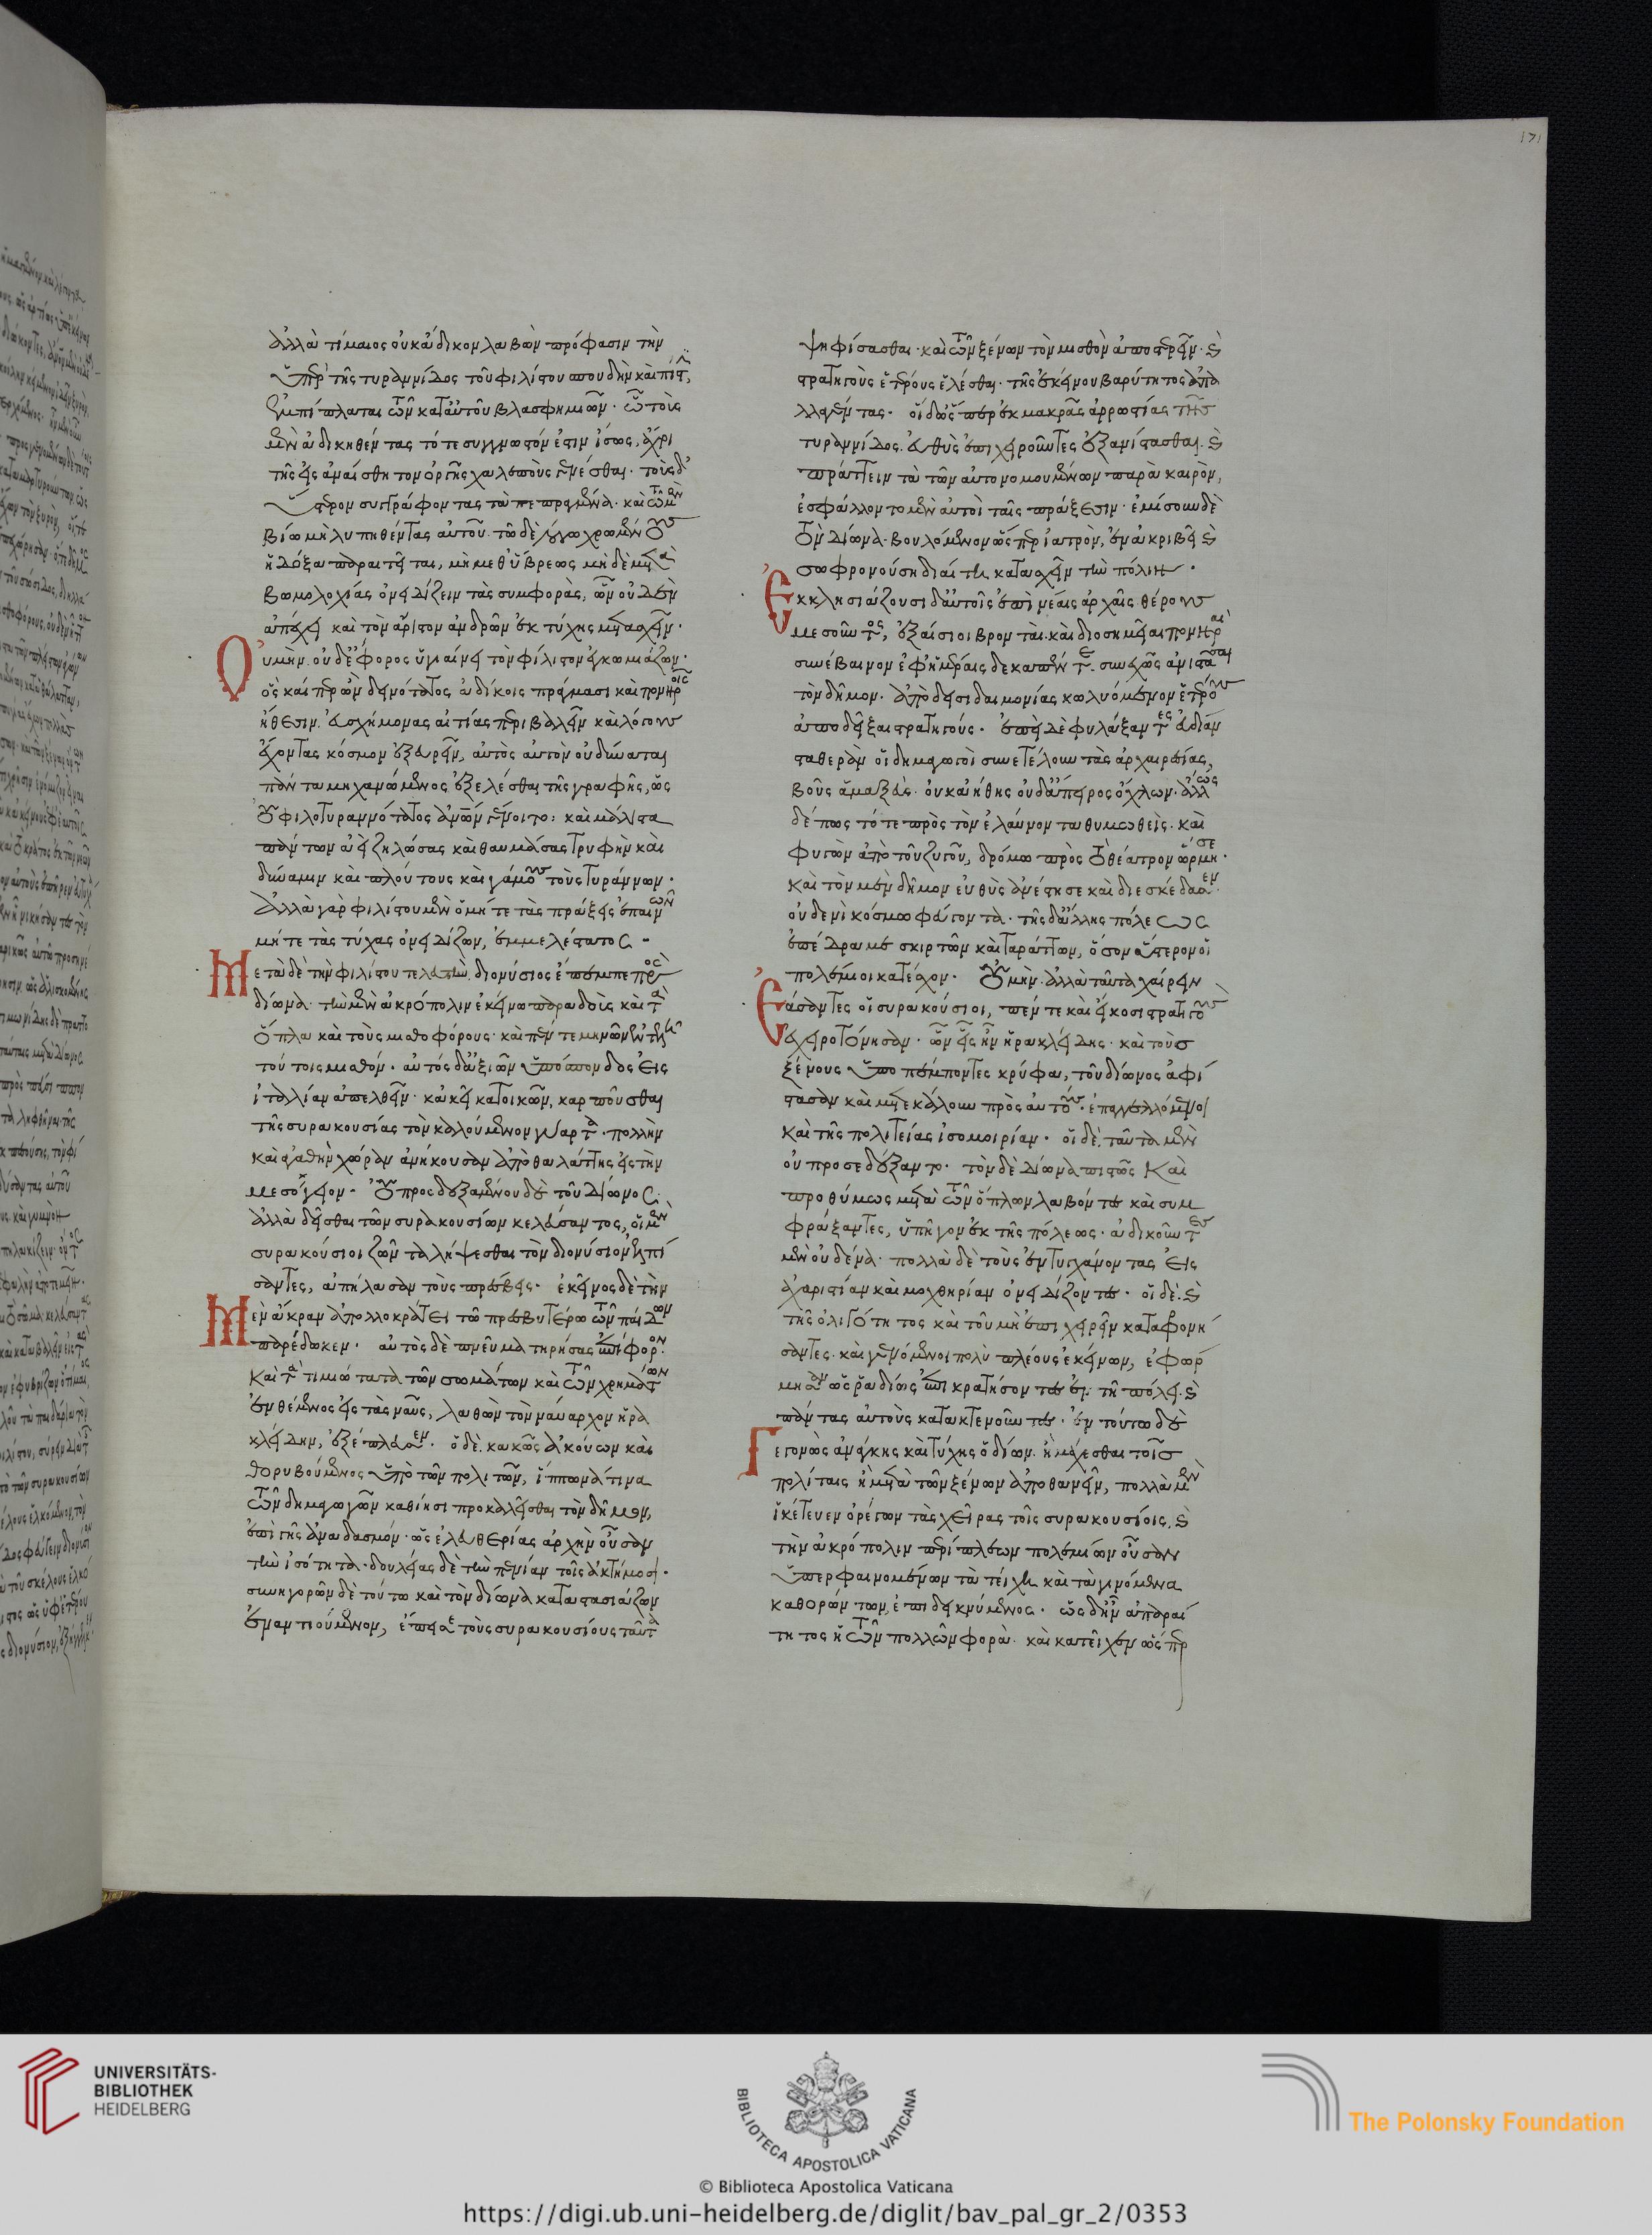 ἀλλὰ τίμαιος οὐκ ἄδικον λαβὼν πρόφασιν τὴν
ὑπὲρ τῆς τυραννίδος τοῦ φιλίστου σπουδὴν καὶ πίστιν,
ἐμπίπλαται τῶν κατ' αὐτοῦ βλασφημιῶν· ᾧ τοῖς
μὲν ἀδικηθέντας τότε συγγνωστόν ἐστιν ἴσως, ἄχρι
τῆς εἰς ἀναίσθητον ὀργῆς χαλεποὺς γενέσθαι· τοὺς δ'
ὕστερον συγγράφοντας τὰ πεπραγμένα· καὶ τῷ μὲν
βίῳ μὴ λυπηθέντας αὐτοῦ· τῷ δὲ λόγῳ χρωμένους
ἡ δόξα παραιτεῖται, μὴ μεθ' ὕβρεως μηδὲ μετὰ
βωμολοχίας ὀνειδίζειν τὰς συμφοράς, ὧν οὐδὲν
ἀπέχει καὶ τὸν ἄριστον ἀνδρῶν ἐκ τύχης μετασχεῖν·
Οὐ μὴν οὐδ' ἔφορος ὑγιαίνει τὸν φίλιστον ἐγκωμιάζων·
ὃς καίπερ ὢν δεινότατος ἀδίκοις πράγμασι καὶ πονηροῖς
ἤθεσιν. εὐσχήμονας αἰτίας περιβαλεῖν καὶ λόγους
ἔχοντας κόσμον ἐξευρεῖν, αὐτὸς αὑτὸν οὐ δύναται
πάντα μηχανώμενος ἐξελέσθαι τῆς γραφῆς, ὡς
οὐ φιλοτυραννότατος ἀνθρώπων γένοιτο: καὶ μάλιστα
πάντων ἀεὶ ζηλώσας καὶ θαυμάσας τρυφὴν καὶ
δύναμιν καὶ πλούτους καὶ γάμους τοὺς τυράννων·
Ἀλλὰ γὰρ φιλίστου μὲν ὁ μήτε τὰς πράξεις ἐπαινῶν
μήτε τὰς τύχας ὀνειδίζων, ἐμμελέστατος·
Μετὰ δὲ τὴν φιλίστου τελευτὴν. διονύσιος ἔπεμπε πρὸς
δίωνα· τὴν μὲν ἀκρόπολιν ἐκείνῳ παραδοὺς καὶ τὰ
ὅπλα καὶ τοὺς μισθοφόρους· καὶ πέντε μηνῶν ἐντελῆ
τούτοις μισθόν· αὐτὸς δ' ἀξιῶν ὑπόσπονδος εἰς
ἰταλίαν ἀπελθεῖν· κἀκεῖ κατοικῶν, καρποῦσθαι
τῆς συρακουσίας τὸν καλούμενον γυαρτὰ· πολλὴν
καὶ ἀγαθὴν χώραν ἀνήκουσαν ἀπὸ θαλάττης εἰς τὴν
μεσόγειον· Οὐ προσδεξαμένου δὲ τοῦ Δίωνος
ἀλλὰ δεῖσθαι τῶν συρακουσίων κελεύσαντος, οἱ μὲν
συρακούσιοι ζῶντα λήψεσθαι τὸν διονύσιον ἐλπί
σαντες, ἀπήλασαν τοὺς πρέσβεις· ἐκεῖνος δὲ τὴν
Μὲν ἄκραν ἀπολλοκράτει τῷ πρεσβυτέρῳ τῶν παίδων
παρέδωκεν· αὐτὸς δὲ πνεῦμα τηρήσας ἐπίφορον·
καὶ τὰ τιμιώτατα τῶν σωμάτων καὶ τῶν χρημάτων
ἐνθέμενος εἰς τὰς ναῦς, λαθὼν τὸν ναύαρχον ἡρα
κλείδην, ἐξέπλευσεν· ὁ δὲ. κακῶς ἀκούων καὶ
θορυβούμενος ὑπὸ τῶν πολιτῶν, ἵππωνά τινα
τῶν δημαγωγῶν καθίησι προκαλεῖσθαι τὸν δῆμον,
ἐπὶ γῆς ἀναδασμόν· ὡς ἐλευθερίας ἀρχὴν οὖσαν
τὴν ἰσότητα· δουλείας δὲ τὴν πενίαν τοῖς ἀκτήμοσι·
συνηγορῶν δὲ τούτῳ καὶ τὸν δίωνα καταστασιάζων
ἐναντιούμενον, ἔπεισε τοὺς συρακουσίους ταῦτα
ψηφίσασθαι· καὶ τῶν ξένων τὸν μισθὸν ἀποστερεῖν· καὶ
στρατηγοὺς ἑτέρους ἑλέσθαι· τῆς ἐκείνου βαρύτητος ἀπα
λλαγέντας· οἱ δ' ὥσπερ ἐκ μακρᾶς ἀρρωστίας τῆς
τυραννίδος. εὐθὺς ἐπιχειροῦντες ἐξανίστασθαι. καὶ
πράττειν τὰ τῶν αὐτονομουμένων παρὰ καιρὸν,
ἐσφάλλοντο μὲν αὐτοὶ ταῖς πράξεσιν· ἐμίσουν δὲ
τὸν Δίωνα· βουλόμενον ὥσπερ ἰατρὸν, ἐν ἀκριβεῖ καὶ
σωφρονούσῃ διαίτῃ κατασχεῖν τὴν πόλιν·
Ἐκκλησιάζουσι δ' αὐτοῖς ἐπὶ νέαις ἀρχαῖς· θέρους
μεσοῦντος, ἐξαίσιοι βρονταὶ· καὶ διοσημεῖαι πονηραὶ
συνέβαινον ἐφ' ἡμέραις δεκαπέντε. συνεχῶς ἀνιστᾶσαι
τὸν δῆμον· ἀπὸ δεισιδαιμονίας κωλυόμενον ἑτέρους
ἀποδεῖξαι στρατηγούς· ἐπεὶ δὲ φυλάξαντες εὐδίαν
σταθερὰν οἱ δημαγωγοὶ συνετέλουν τὰς ἀρχαιρεσίας,
βοῦς ἁμαξεὺς· οὐκ ἀήθης οὐδ' ἄπειρος ὄχλων· ἄλλως
δέ πως τότε πρὸς τὸν ἐλαύνοντα θυμωθεὶς· καὶ
φυγὼν ἀπὸ τοῦ ζυγοῦ, δρόμῳ πρὸς τὸ θέατρον ὥρμησε·
καὶ τὸν μὲν δῆμον εὐθὺς ἀνέστησε καὶ διεσκέδασεν·
οὐδενὶ κόσμῳ φεύγοντα· τῆς δ' ἄλλης πόλεως
ἐπέδραμε σκιρτῶν καὶ ταράττων, ὅσον ὕστερον οἱ
πολέμιοι κατέσχον· Οὐ μὴν· ἀλλὰ ταῦτα χαίρειν
Ἐάσαντες οἱ συρακούσιοι, πέντε καὶ εἴκοσι στρατηγοὺς
ἐχειροτόνησαν· ὧν εἷς ἦν ἡρακλείδης· καὶ τοὺς
ξένους ὑποπέμποντες κρύφα, τοῦ δίωνος ἀφί
στασαν καὶ μετεκάλουν πρὸς αὐτοὺς· ἐπαγγελλόμενοι
καὶ τῆς πολιτείας ἰσομοιρίαν· οἱ δὲ. ταῦτα μὲν
οὐ προσεδέξαντο· τὸν δὲ Δίωνα πιστῶς καὶ
προθύμως μετὰ τῶν ὅπλων λαβόντες καὶ συμ
φράξαντες, ὑπῆγον ἐκ τῆς πόλεως· ἀδικοῦντες
μὲν οὐδένα· πολλὰ δὲ τοὺς ἐντυγχάνοντας εἰς
ἀχαριστίαν καὶ μοχθηρίαν ὀνειδίζοντες· οἱ δὲ. καὶ
τῆς ὀλιγότητος καὶ τοῦ μὴ ἐπιχειρεῖν καταφρονή
σαντες. καὶ γενόμενοι πολὺ πλέους ἐκείνων, ἐφώρ
μησαν ὡς ῥᾳδίως ἐπικρατήσοντες ἐν τῇ πόλει. καὶ
πάντας αὐτοὺς κατακτενοῦντες· ἐν τούτῳ δὲ
Γεγονὼς ἀνάγκης καὶ τύχης ὁ δίων. ἢ μάχεσθαι τοῖς
πολίταις ἢ μετὰ τῶν ξένων ἀποθανεῖν, πολλὰ μὲν
ἱκέτευεν ὀρέγων τὰς χεῖρας τοῖς συρακουσίοις, καὶ
τὴν ἀκρόπολιν περίπλεων πολεμίων οὖσαν
ὑπερφαινομένων τὰ τείχη καὶ τὰ γινόμενα
καθορώντων, ἐπιδεικνύμενος· ὡς δ' ἦν ἀπαραί
τητος ἡ τῶν πολλῶν φορὰ· καὶ κατεῖχεν ὥσπερ
171
UNIVERSITÄTS-
BIBLIOTHEK
HEIDELBERG
BIBLIOTECA APOSTOLICA VATICANA
The Polonsky Foundation
© Biblioteca Apostolica Vaticana
https://digi.ub.uni-heidelberg.de/diglit/bav_pal_gr_2/0353